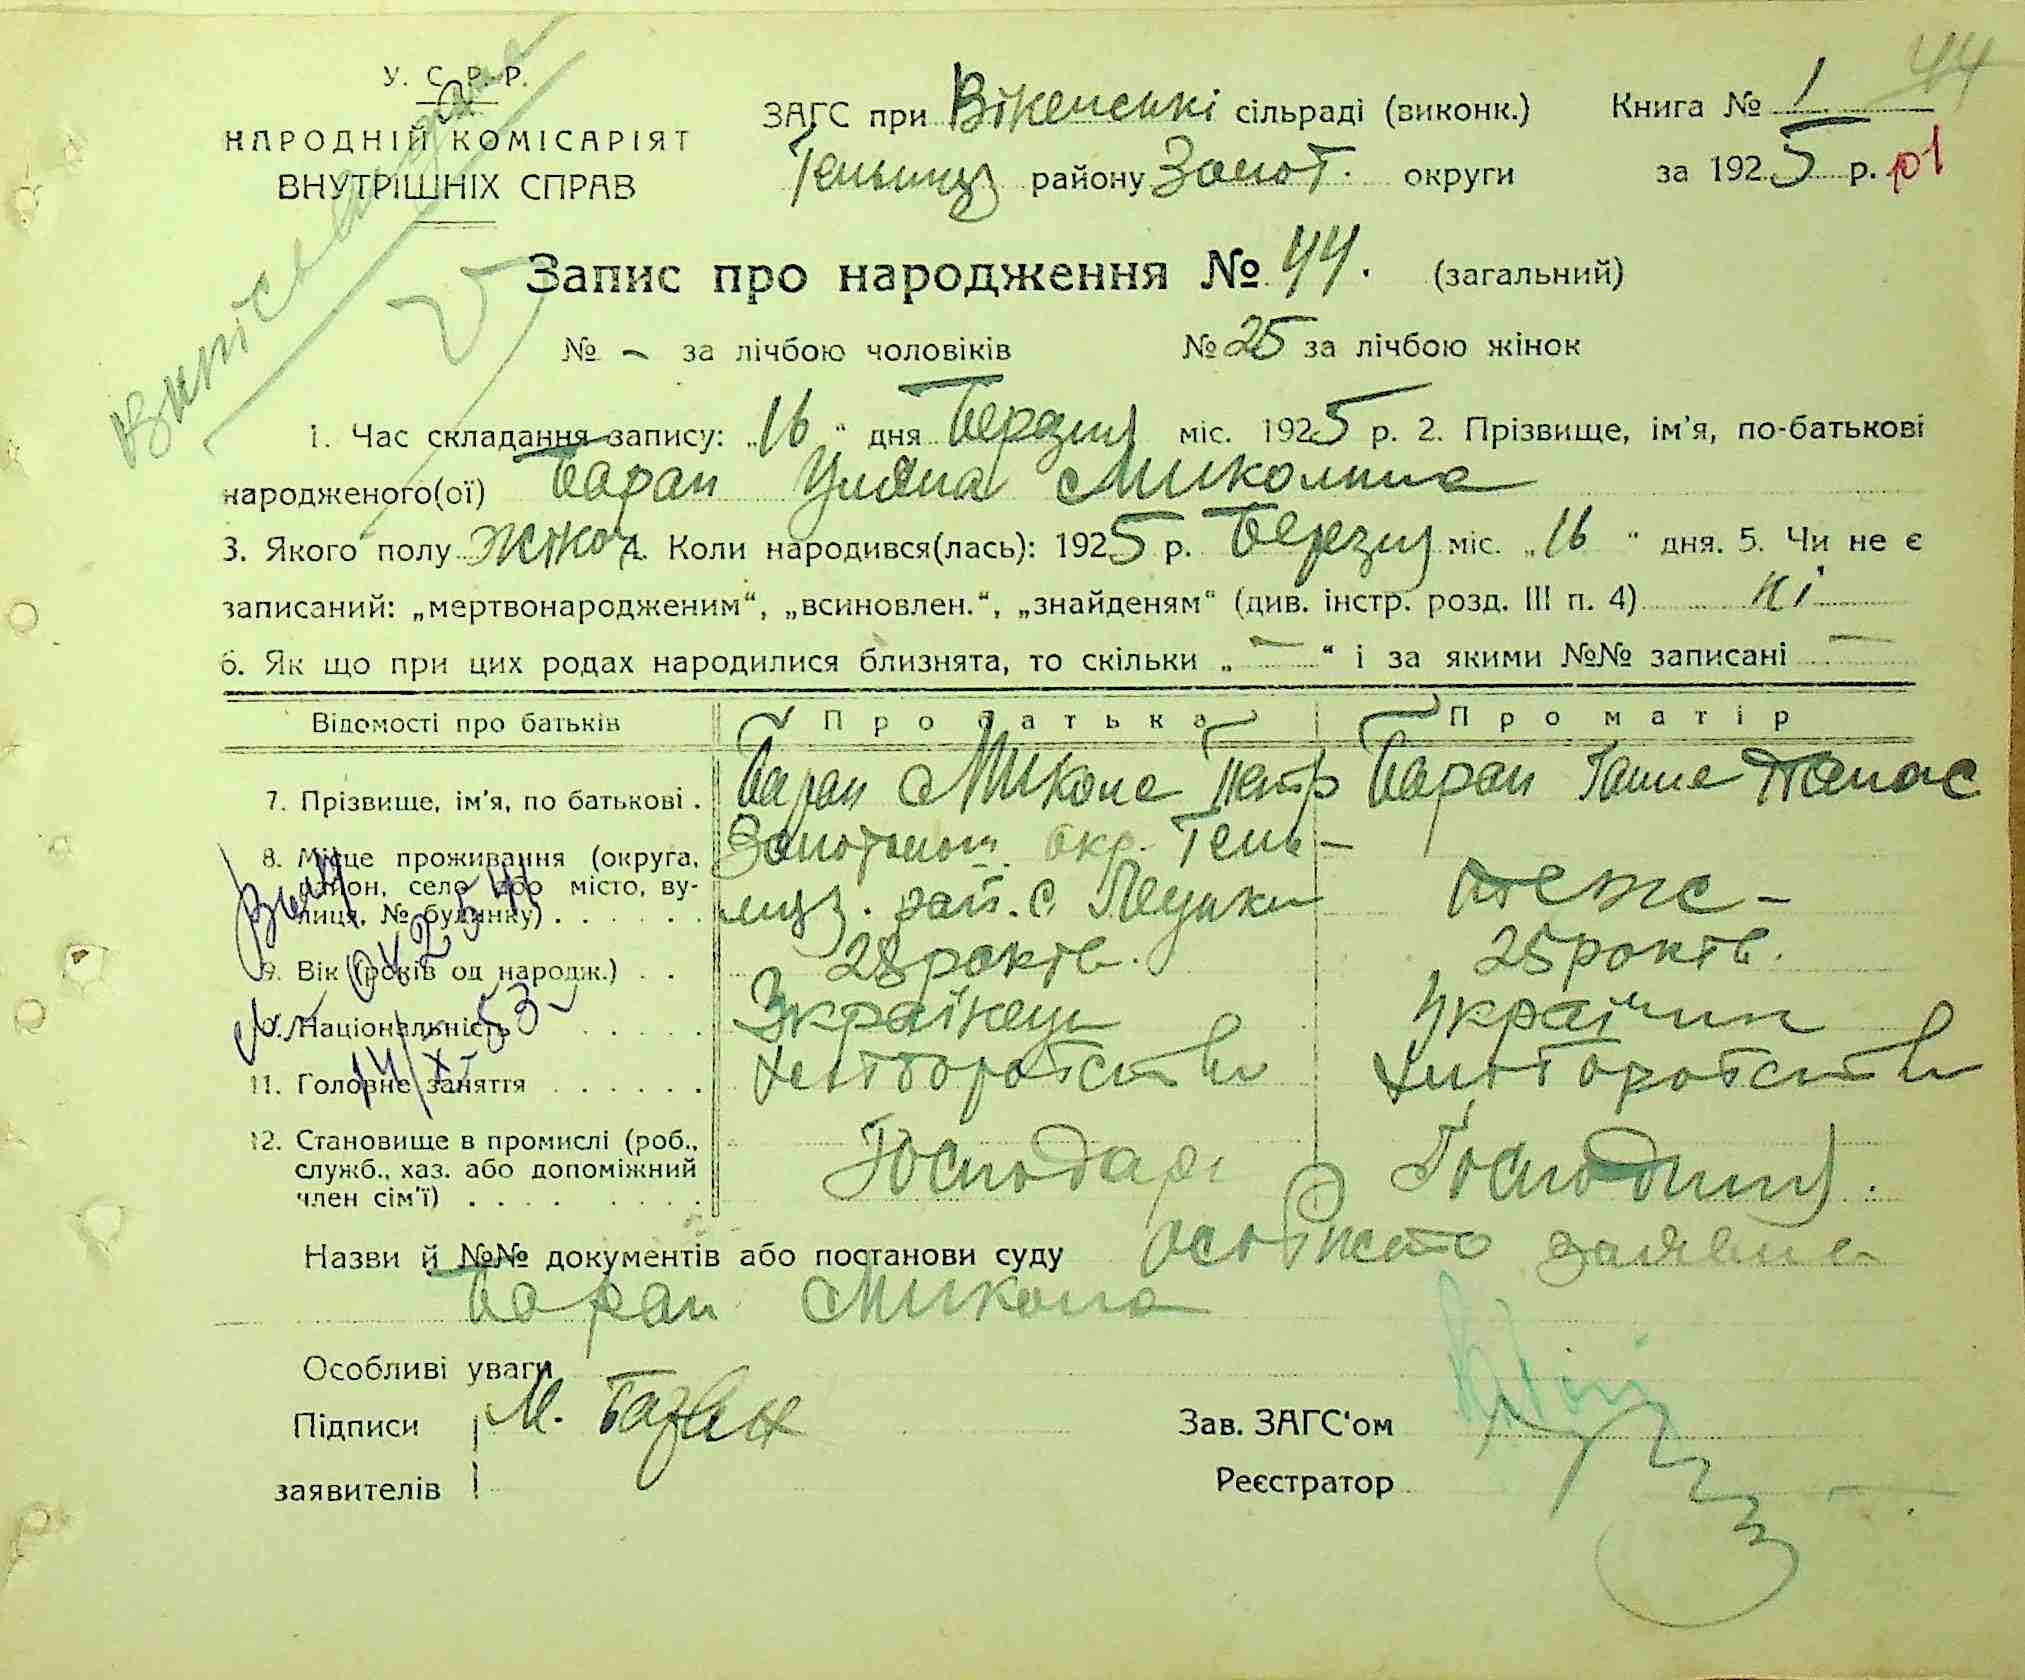 44
У. С. Р. Р.
НАРОДНІЙ КОМІСАРІЯТ
ВНУТРІШНІХ СПРАВ
ЗАГС при сільраді (виконк.) Книга № 1
району Золот. округи за 1925 р.
Запис про народження № 44. (загальний)
№ - за лічбою чоловіків № 25 за лічбою жінок
1. Час складання запису: „16“ дня Березня міс. 1925 р. 2. Прізвище, ім'я, по-батькові
народженого(ої) Баран Уляна Миколина
3. Якого полу жіноч 4. Коли народився(лась): 1925 р. Березня міс. „16“ дня. 5. Чи не є
записаний: „мертвонародженим“, „всиновлен.“, „знайденям“ (див. інстр. розд. III п. 4) ні
6. Як що при цих родах народилися близнята, то скільки „—“ і за якими №№ записані —
Відомості про батьків Про батька Про матір
7. Прізвище, ім'я, по батькові . Баран Микола Петр Баран Ганна Панас
8. Місце проживання (округа, район, село або місто, вулиця, № будинку) . . . . . . Золотоном. окр. Гель-
рай. с. теже -
9. Вік (років од народж.) . . 28 років. 25 років.
10. Національність . . . . . Українець Українк
11. Головне заняття . . . . . . Хліборобство Хліборобство
12. Становище в промислі (роб., Господарь Господиня.
служб., хаз. або допоміжний
член сім'ї) . . . . . . . .
Назви й №№ документів або постанови суду особисто заявив
Баран Микола
Особливі уваги
Підписи М. Баран Зав. ЗАГС'ом
заявителів Реєстратор